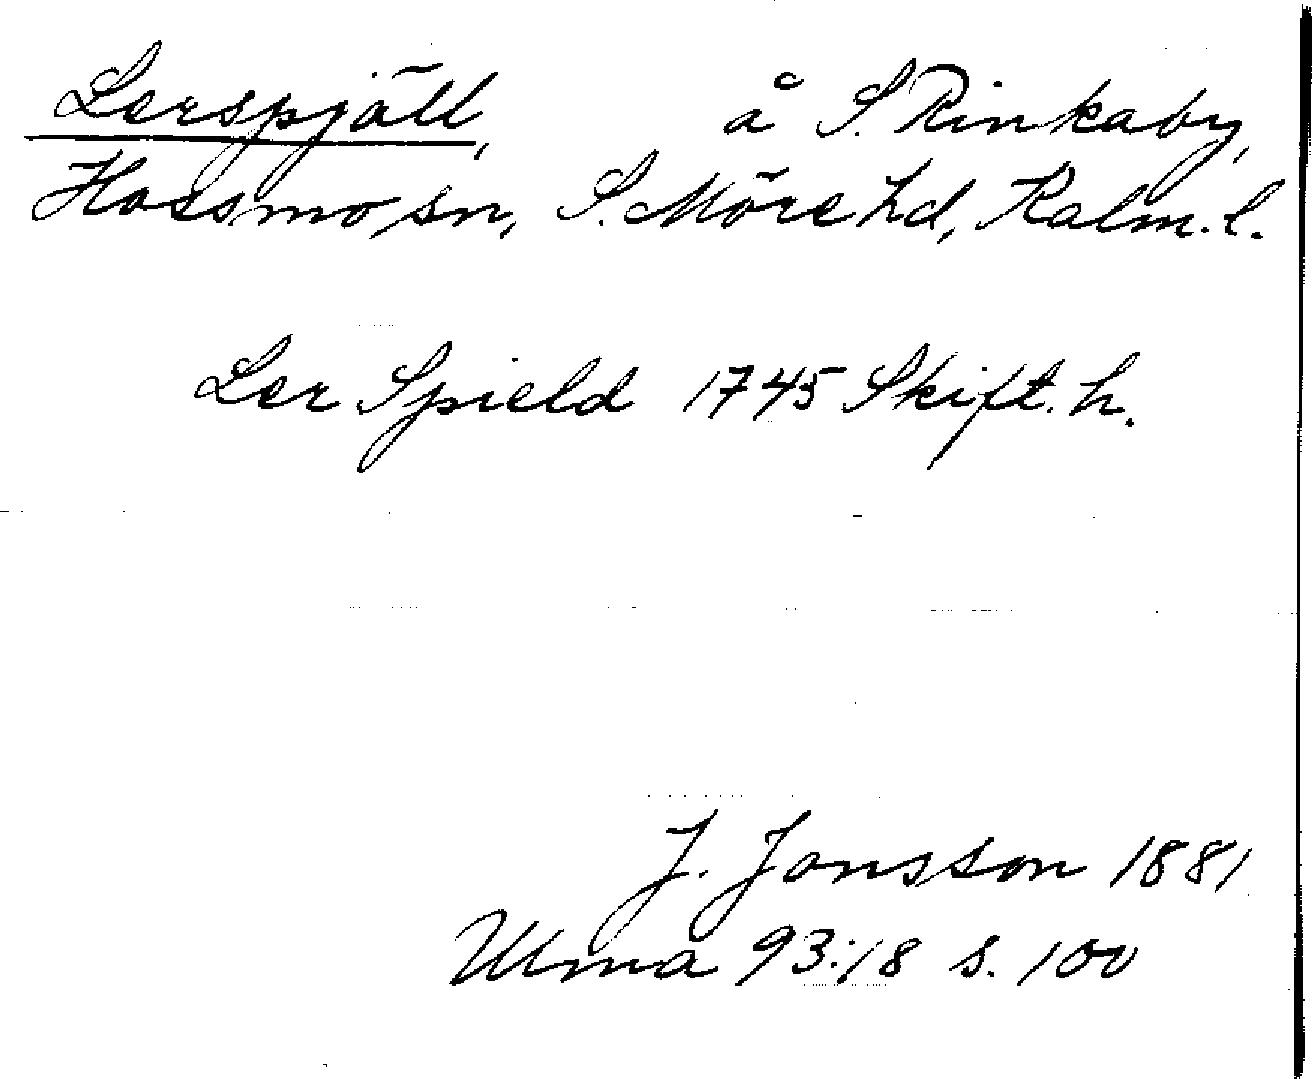 Lerspjäll, å S. Rinkaby,
Hossmo sn, S. Möre hd, Kalm. l.
Ler Spield 1745 Skift. h.
J. Jonsson 1881
Ulma 93:18 s. 100